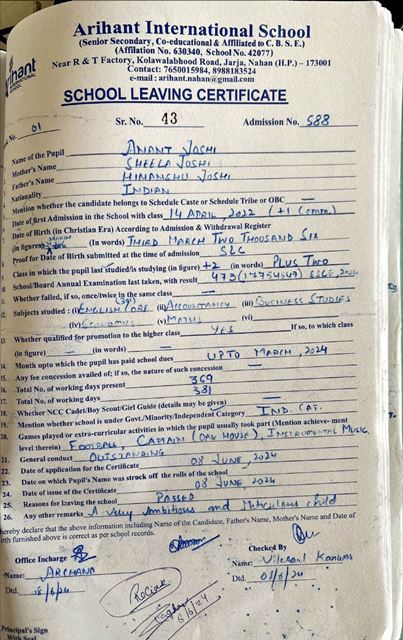 Arihant International School
(Senior Secondary, Co-educational & Affiliated to C. B. S. E.)
(Affilation No. 630340, School No. 42077)
Near R & T Factory, Kolawalabhood Road, Jarja, Nahan (H.P.) – 173001
Contact: 7650015984, 8988183524
e-mail : arihant.nahan@gmail.com
Arihant
SCHOOL LEAVING CERTIFICATE
No. 01 Sr. No. 43 Admission No. 588
Name of the Pupil ANANT JOSHI
Mother's Name SHEELA JOSHI
Father's Name HIMANSHU JOSHI
Nationality INDIAN
Mention whether the candidate belongs to Schedule Caste or Schedule Tribe or OBC —
Date of first Admission in the School with class 14 APRIL, 2022 (+1 Comm.)
Date of Birth (in Christian Era) According to Admission & Withdrawal Register
(in figures) (In words) THIRD MARCH TWO THOUSAND SIX
Proof for Date of Birth submitted at the time of admission SLC
Class in which the pupil last studied/is studying (in figure) +2 (in words) PLUS TWO
School/Board Annual Examination last taken, with result 473 (17754549) 2024
11. Whether failed, if so, once/twice in the same class —
12. Subjects studied : (i) ENGLISH CORE (ii) ACCOUNTANCY (iii) BUSINESS STUDIES
(iv) ECONOMICS (v) MATHS (vi)
13. Whether qualified for promotion to the higher class YES If so, to which class
(in figure) — (in words) —
14. Month upto which the pupil has paid school dues UPTO MARCH, 2024
15. Any fee concession availed of; if so, the nature of such concession —
16. Total No. of working days present 369
17. Total No. of working days 381
18. Whether NCC Cadet/Boy Scout/Girl Guide (details may be given) —
19. Mention whether school is under Govt./Minority/Independent Category IND. CAT.
20. Games played or extra-curricular activities in which the pupil usually took part (Mention achieve- ment
level therein) FOOTBALL, CAPTAIN (OAK HOUSE), INSTRUMENTAL MUSIC
21. General conduct OUTSTANDING
22. Date of application for the Certificate 08 JUNE, 2024
23. Date on which Pupil's Name was struck off the rolls of the school
24. Date of issue of the Certificate 08 JUNE, 2024
25. Reasons for leaving the school PASSED
26. Any other remarks A very Ambitious and Meticulous child
hereby declare that the above information including Name of the Candidate, Father's Name, Mother's Name and Date of
birth furnished above is correct as per school records.
Office Incharge Checked By
Name: ARCHANA Name: Vikrant Kanwar
Dtd. 8/6/24 Dtd. 08/6/24
8/6/24
Principal's Sign
With Seal